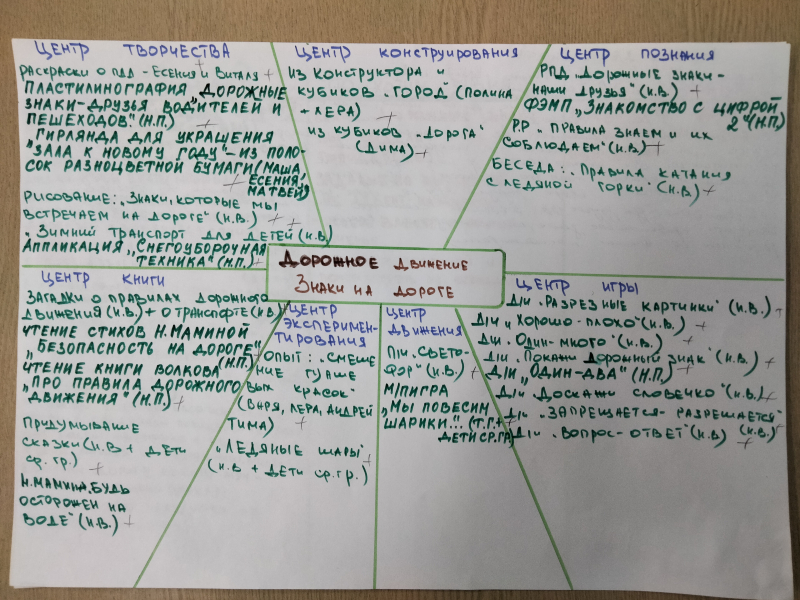 ЦЕНТР ТВОРЧЕСТВА
РАСКРАСКИ О ПДД - ЕСЕНИЯ И ВИТАЛЯ +
ПЛАСТИЛИНОГРАФИЯ „ДОРОЖНЫЕ
ЗНАКИ-ДРУЗЬЯ ВОДИТЕЛЕЙ И
ПЕШЕХОДОВ" (Н.П.) +
„ГИРЛЯНДА ДЛЯ УКРАШЕНИЯ
ЗАЛА К НОВОМУ ГОДУ" - ИЗ ПОЛО-
СОК РАЗНОЦВЕТНОЙ БУМАГИ (МАША,
+ ЕСЕНИЯ,
МАТВЕЙ)
РИСОВАНИЕ: „ЗНАКИ, КОТОРЫЕ МЫ
ВСТРЕЧАЕМ НА ДОРОГЕ" (Н.В.) + +
„ЗИМНИЙ ТРАНСПОРТ ДЛЯ ДЕТЕЙ (Н.В)
АППЛИКАЦИЯ „СНЕГОУБОРОЧНАЯ
ТЕХНИКА" (Н.П.) +
ЦЕНТР КОНСТРУИРОВАНИЯ
ИЗ КОНСТРУКТОРА И
КУБИКОВ „ГОРОД" (ПОЛИНА
+ ЛЕРА) +
ИЗ КУБИКОВ „ДОРОГА"
(ДИМА) +
ЦЕНТР ПОЗНАНИЯ
РПД „ДОРОЖНЫЕ ЗНАКИ -
НАШИ ДРУЗЬЯ" (Н.В.) +
ФЭМП „ЗНАКОМСТВО С ЦИФРОЙ
2" (Н.П)
Р.Р „ПРАВИЛА ЗНАЕМ И ИХ
СОБЛЮДАЕМ" (Н.В) +
БЕСЕДА: „ПРАВИЛА КАТАНИЯ
С ЛЕДЯНОЙ ГОРКИ" (Н.В) +
ДОРОЖНОЕ ДВИЖЕНИЕ
ЗНАКИ НА ДОРОГЕ
ЦЕНТР КНИГИ
ЗАГАДКИ О ПРАВИЛАХ ДОРОЖНОГО
ДВИЖЕНИЯ (Н.В) + О ТРАНСПОРТЕ (Н.В)
ЧТЕНИЕ СТИХОВ Н.МАМИНОЙ
„БЕЗОПАСНОСТЬ НА ДОРОГЕ"
(Н.П)
ЧТЕНИЕ КНИГИ ВОЛКОВА
„ПРО ПРАВИЛА ДОРОЖНОГО
ДВИЖЕНИЯ" (Н.П) +
ПРИДУМЫВАНИЕ
СКАЗКИ (Н.В + ДЕТИ
СР. ГР.) +
Н.МАМИНА „БУДЬ
ОСТОРОЖЕН НА
ВОДЕ" (Н.В.) +
ЦЕНТР
ЭКСПЕРИМЕН-
ТИРОВАНИЯ
ОПЫТ: „СМЕШЕ
НИЕ ГУАШЕ
ВЫХ КРАСОК"
(ВАРЯ, ЛЕРА, АНДРЕЙ
ТИМА) +
„ЛЕДЯНЫЕ ШАРЫ" +
(Н.В + ДЕТИ СР.ГР.)
ЦЕНТР
ДВИЖЕНИЯ
П/И „СВЕТО-
ФОР" (Н.В.) +
М/П ИГРА
„МЫ ПОВЕСИМ
ШАРИКИ"!! (Т.Г. +
ДЕТИ СР.ГР)
ЦЕНТР ИГРЫ
Д/И „РАЗРЕЗНЫЕ КАРТИНКИ" (Н.В.) +
Д/И „ХОРОШО-ПЛОХО" (Н.В.) +
Д/И „ОДИН-МНОГО" (Н.В.) +
Д/И „ПОКАЖИ ДОРОЖНЫЙ ЗНАК" (Н.В.) +
Д/И „ОДИН-ДВА" (Н.П.) +
Д/И „ДОСКАЖИ СЛОВЕЧКО" (Н.В.) +
Д/И „ЗАПРЕЩАЕТСЯ-РАЗРЕШАЕТСЯ"
(Н.В.) +
Д/И „ВОПРОС-ОТВЕТ" (Н.В) +